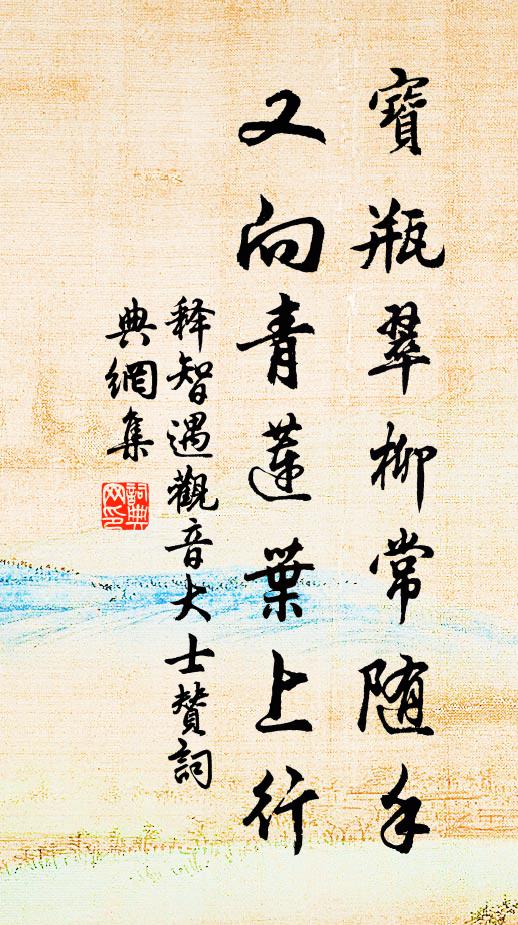 寶瓶翠柳常随手
又向青蓮葉上行
释智遇觀音大士贊詞
典網集
詞典
网印